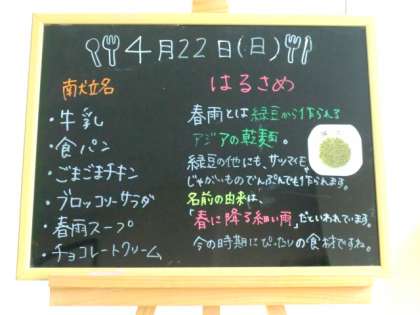 4月22日(日)
献立名
・牛乳
・食パン
・ごまごまチキン
・ブロッコリーサラダ
・春雨スープ
・チョコレートクリーム
はるさめ
春雨とは緑豆から作られる
アジアの乾麺。
緑豆の他にも、サツマイモ、
じゃがいものでんぷんでも作られます。
名前の由来は、
「春に降る細い雨」だといわれています。
今の時期にぴったりの食材ですね。